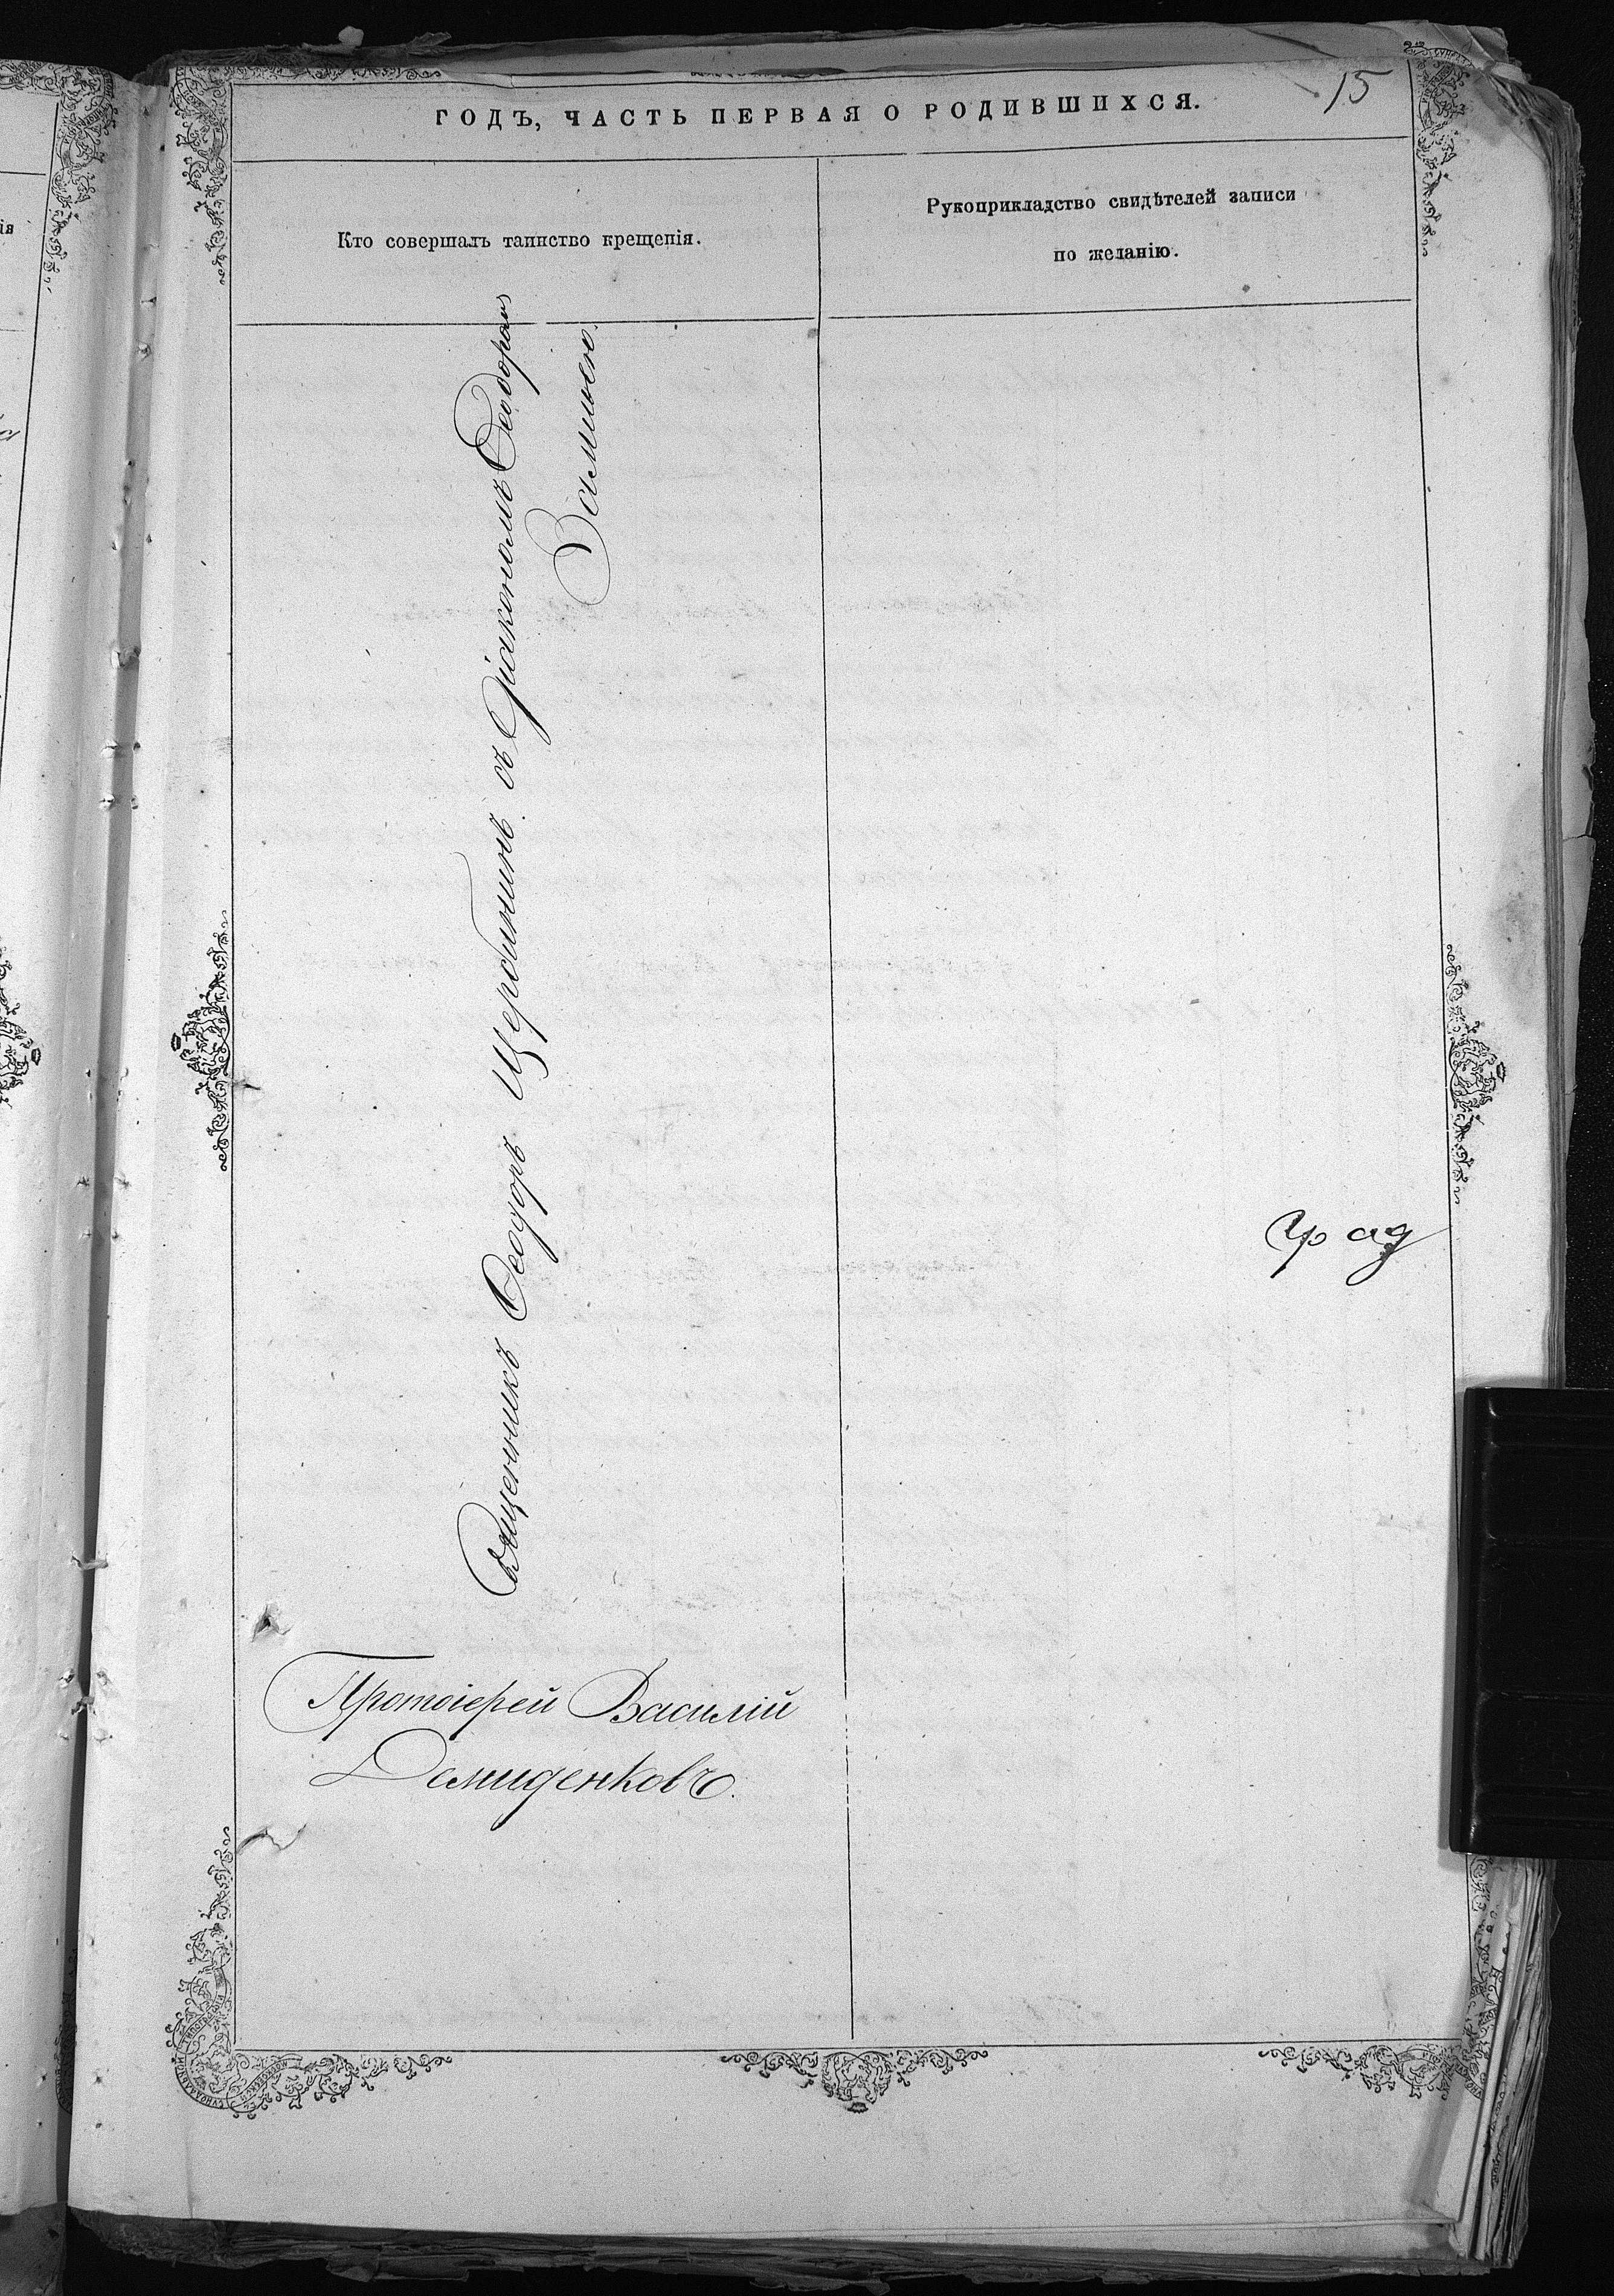 15
ГОДЪ, ЧАСТЬ ПЕРВАЯ О РОДИВШИХСЯ.
Кто совершалъ таинство крещенія.
Рукоприкладство свидѣтелей записи
по желанію.
Священникъ Ѳеодоръ Щербининъ съ Діакономъ Ѳеодоромъ
Протоіерей Василій
Демиденковъ.